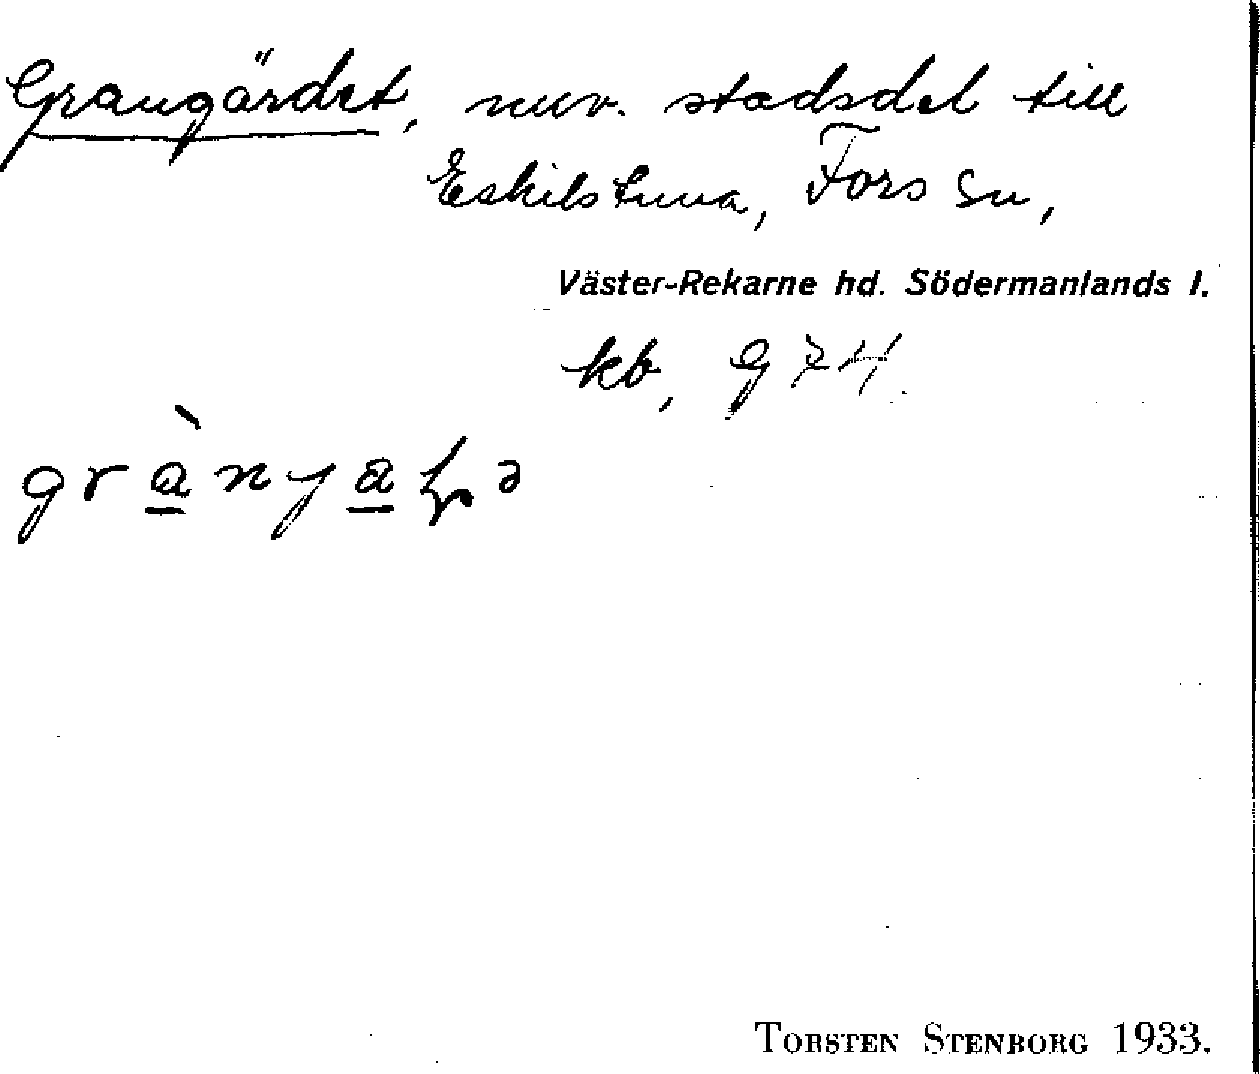 Grangärdet, nuv. stadsdel till
Eskilstuna, Fors sn,
Väster-Rekarne hd. Södermanlands l.
kb, G 74.
TORSTEN STENBORG 1933.